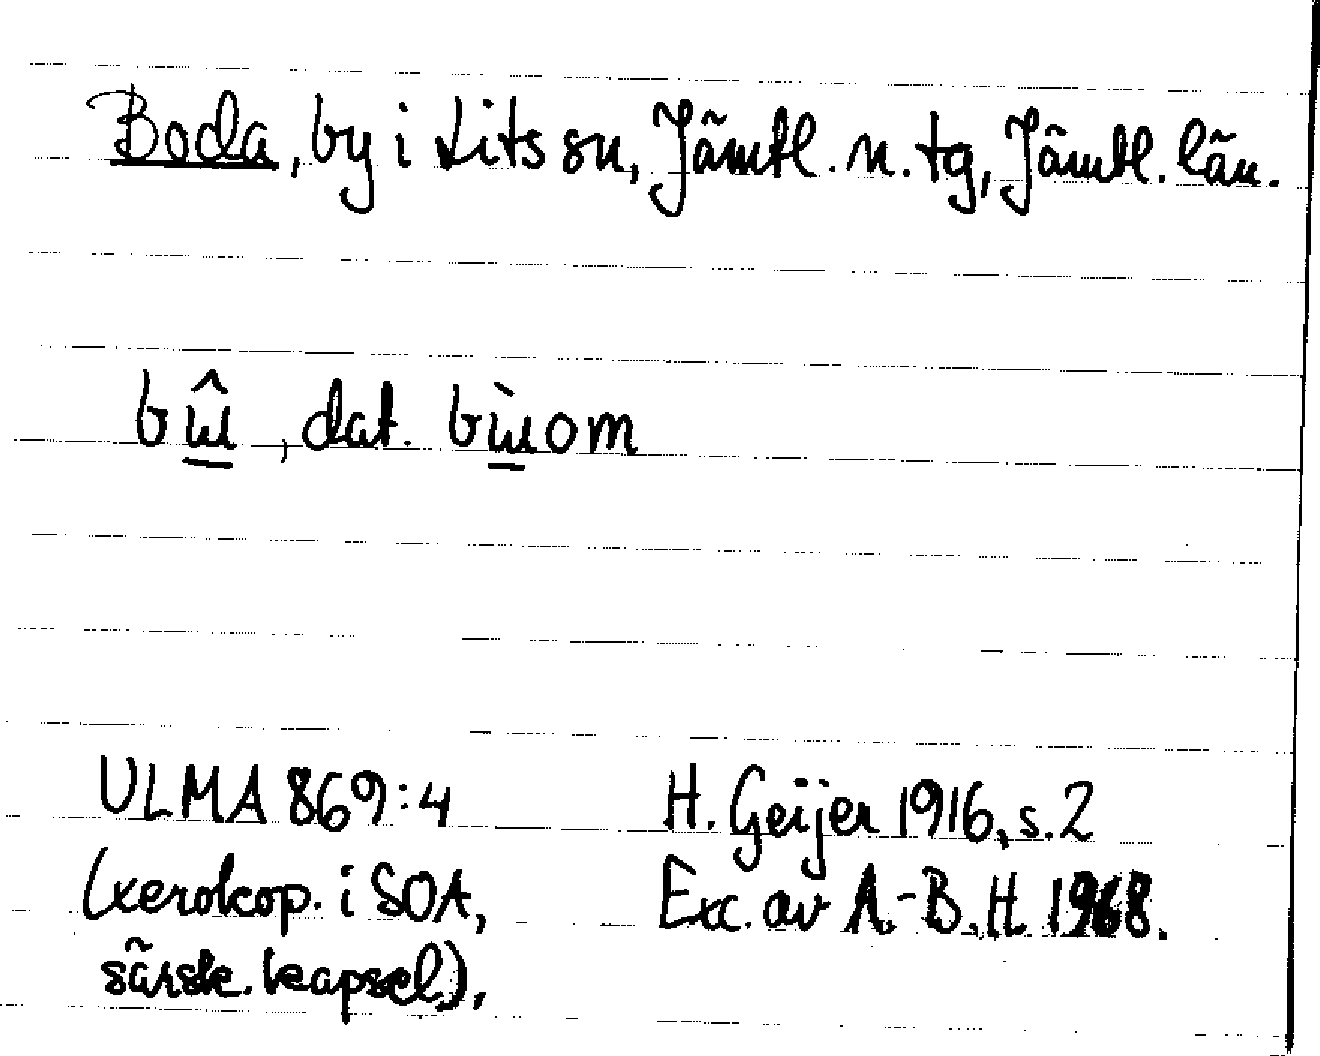 Boda, by i Lits sn, Jämtl. n. tg, Jämtl. län.
bɯ̂, dat. bɯ̀om
ULMA 869:4 H. Geijer 1916, s. 2
(xerokop. i SOA, Exc. av A.-B. H. 1968.
särsk. kapsel),